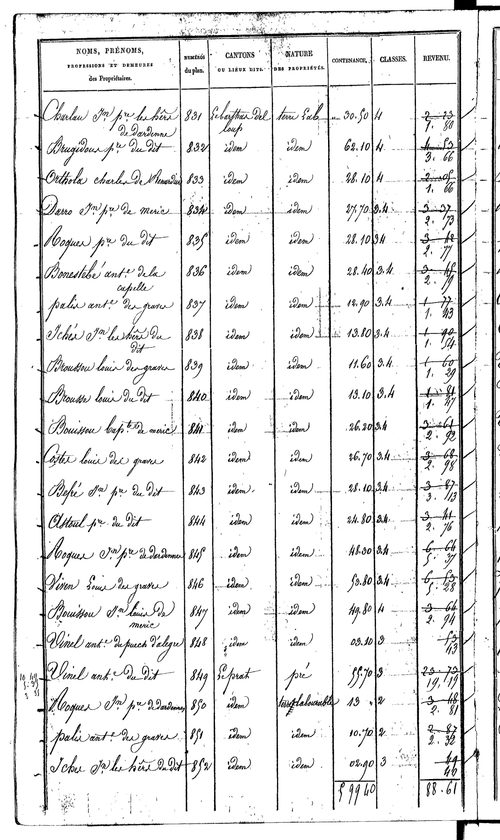 NOMS, PRÉNOMS, PROFESSIONS ET DEMEURES des Propriétaires. | NUMÉROS du plan. | CANTONS OU LIEUX DITS. | NATURE DES PROPRIÉTÉS. | CONTENANCE. | CLASSES. | REVENU.
Charlau Jn pre les hérs 831 terre Lab 30.50 4 2 23
de dardenne loup 1. 80
Brugidou pre du dit 832 idem idem 62.10 4 4 53
3. 66
Orthola charles de 833 idem idem 28.10 4 2 05
1. 66
Darro Jn pre de meric 834 idem idem 27.70 3.4 3 37
2. 73
Roques pre du dit 835 idem idem 28.10 3.4 3 42
2. 77
Bonestébé ante de la 836 idem idem 28.40 3.4 3 45
capelle 2. 79
palis ante des graves 837 idem idem 12.90 3.4 1 77
1. 43
Jchés Jn les hérs du 838 idem idem 13.80 3.4 1 90
dit 1. 54
Broussou louis des graves 839 idem idem 11.60 3.4 1 60
1. 29
Brousse louis du dit 840 idem idem 13.10 3.4 1 81
1. 47
Bouissou bapte de meric 841 idem idem 26.20 3.4 3 61
2. 92
Coste louis des graves 842 idem idem 26.70 3.4 3 68
2. 98
Jn pre du dit 843 idem idem 28.10 3.4 3 87
3. 13
pre du dit 844 idem idem 24.80 3.4 3 41
2. 76
Roques Jn pre de dardenne 845 idem idem 48.30 3.4 6 64
5. 37
Louis des graves 846 idem idem 53.80 3.4 6 53
5. 28
Bouissou Jn louis de 847 idem idem 49.80 4 3 64
meric 2. 94
Vinel ante de puech d'alegre 848 idem idem 03.10 3 53
43
Vinel ante du dit 849 Le prat pré 55.70 3 23 73
19, 19
Roques Jn pre de dardenne 850 idem terre Labourable 13 " 2 3 48
2. 81
palis ante des graves 851 idem idem 10.70 2 2 87
2. 32
Jches Jn les hérs du dit 852 idem idem 02.90 3 49
40
5 99 40 88.61